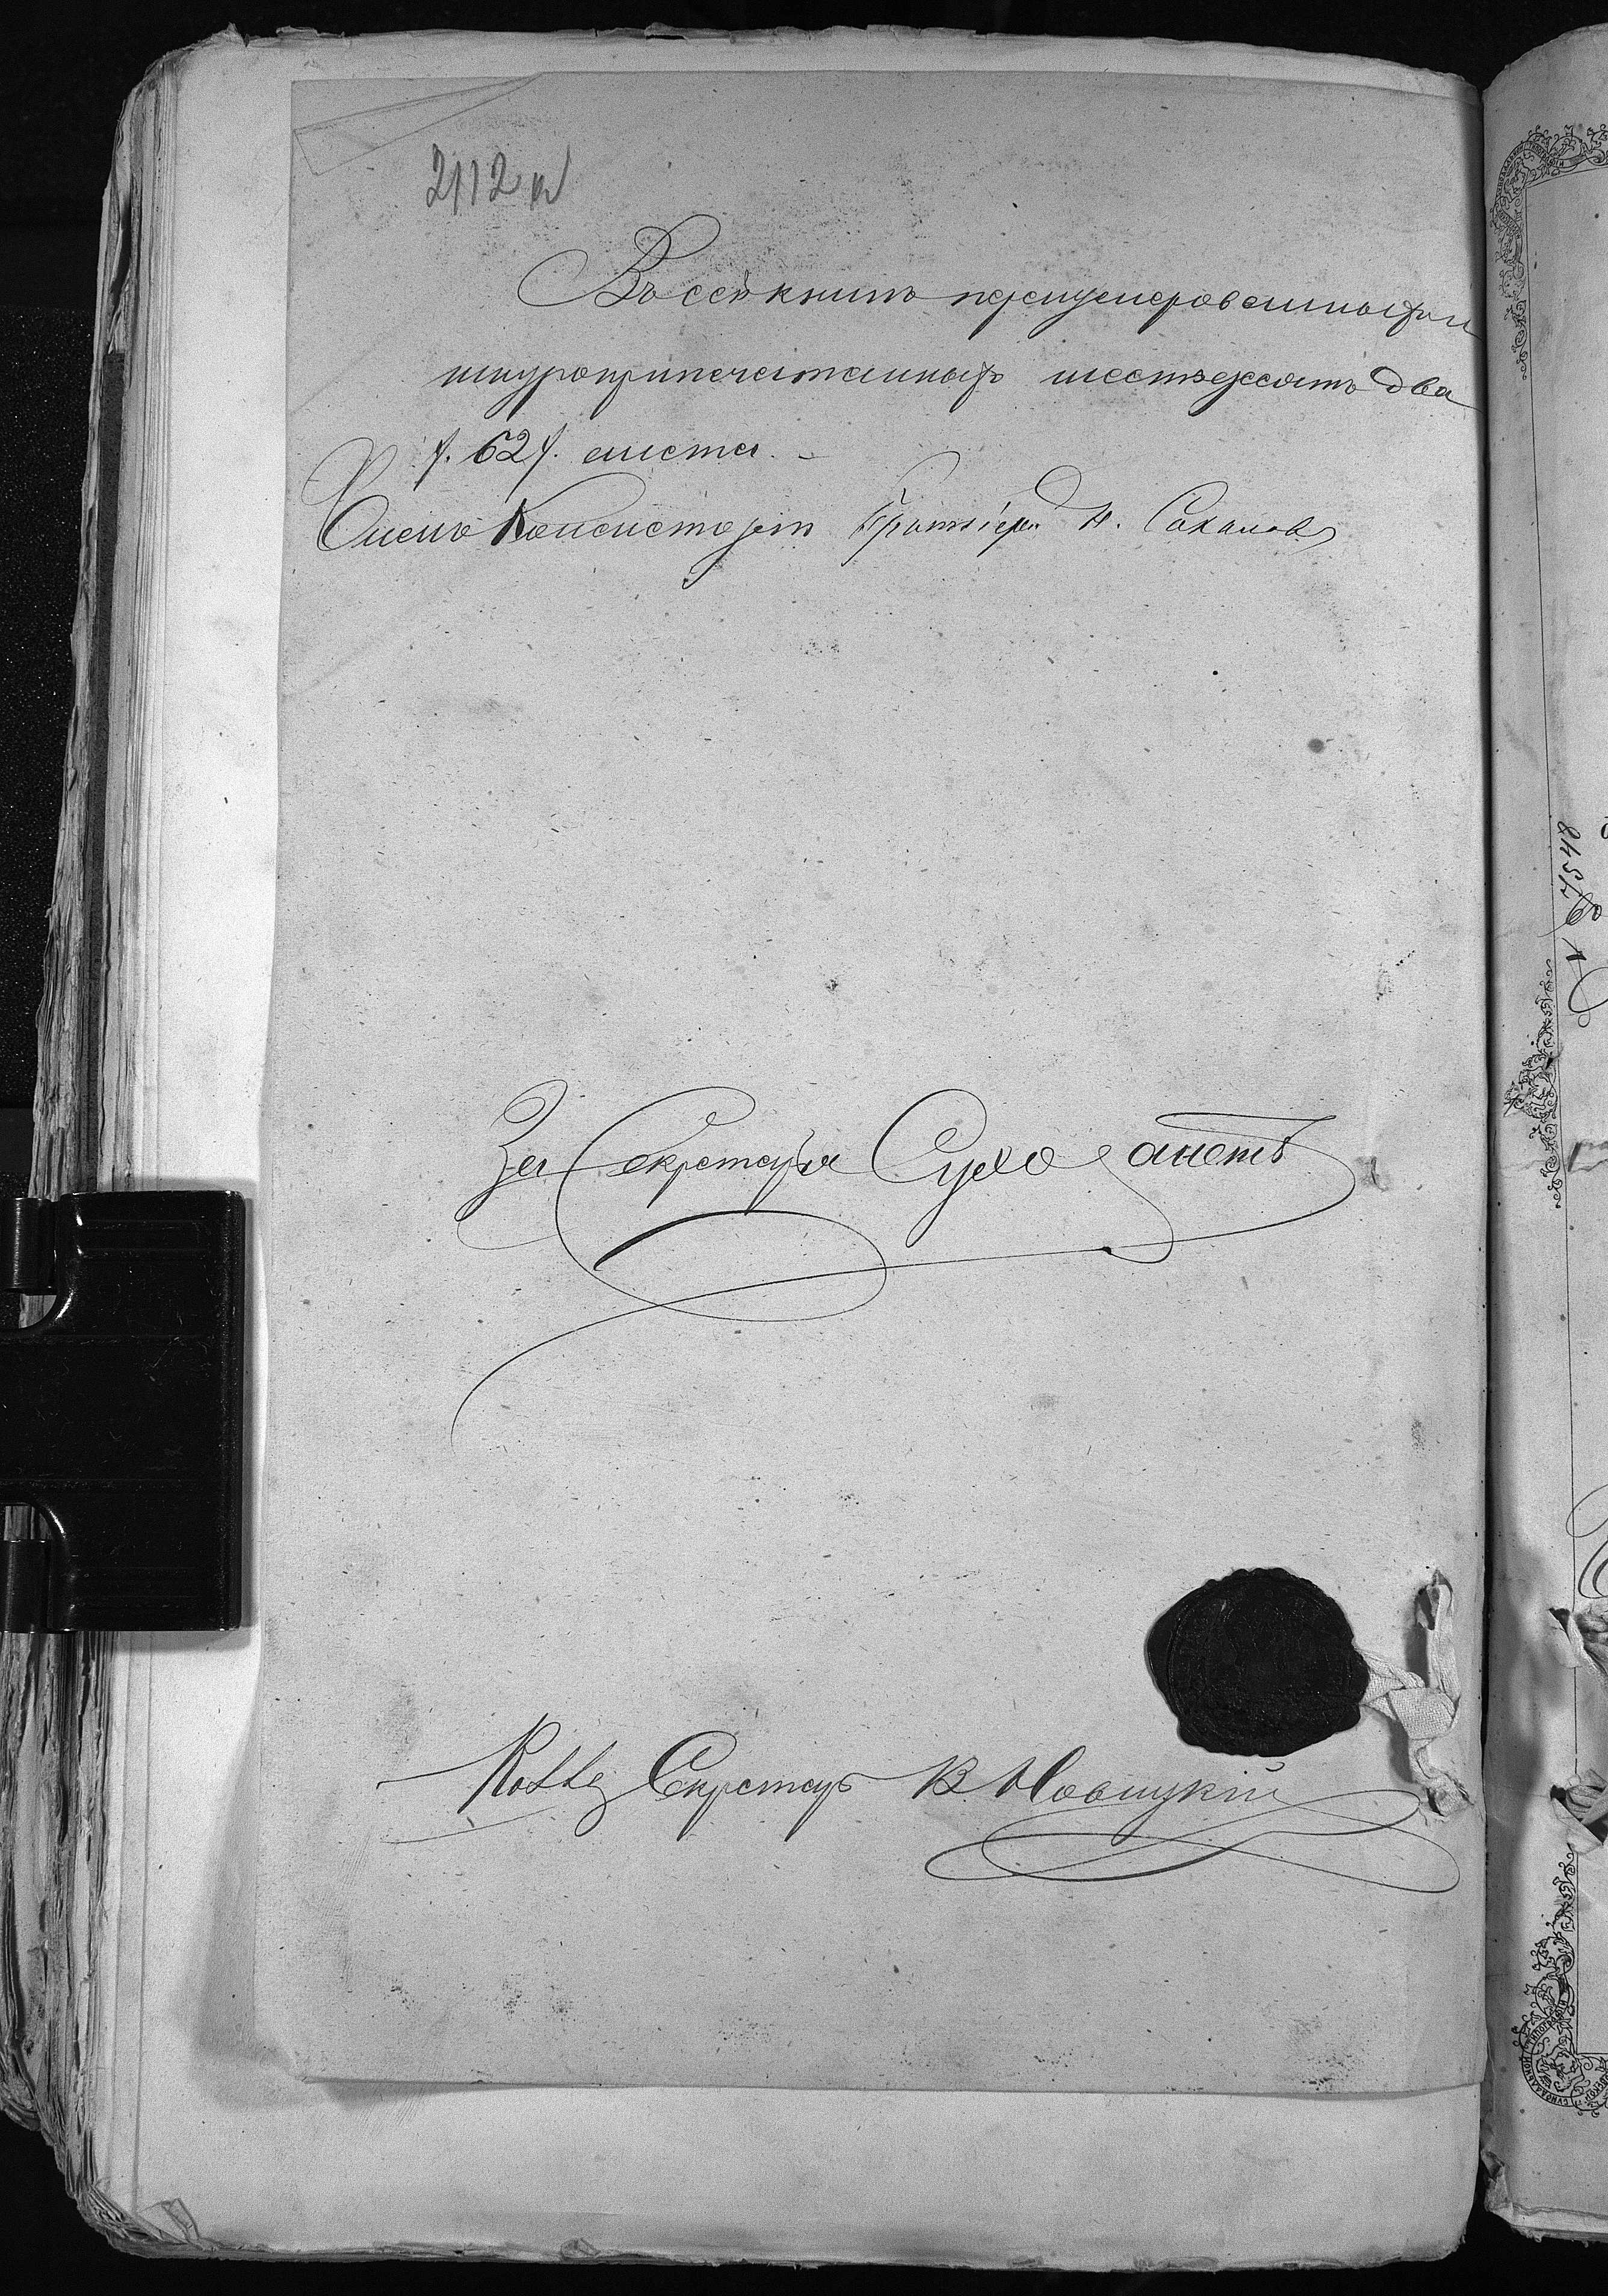 2112 а
Въ сей книгѣ перенумерованныхъ и
шнуроприпечатанныхъ шестьдесятъ два
(62). листа. –
Членъ Консисторіи Протоіер. Н. Соколовъ
За Секретаря Сухозанетъ
Колл Секретарь В Новицкій
7548